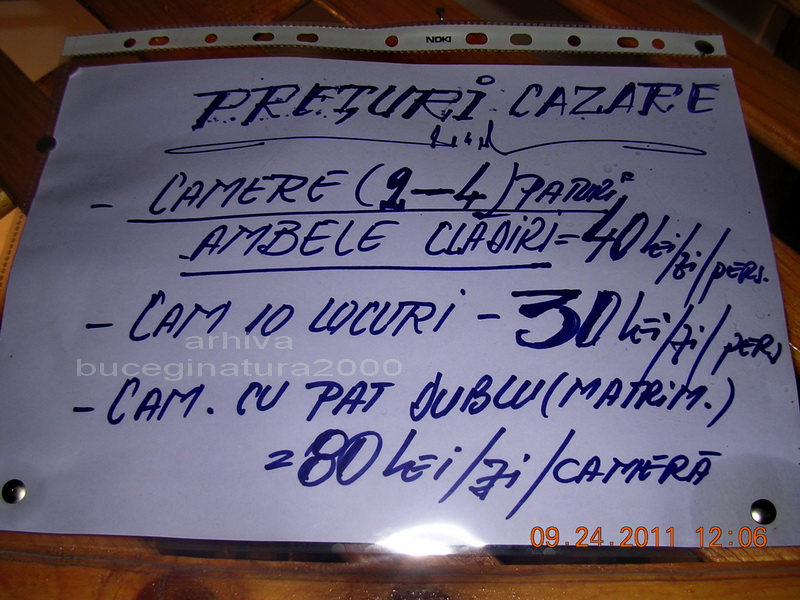 NOKI
PREŢURI CAZARE
- CAMERE (2-4) PATURI
AMBELE CLĂDIRI = 40 LEI/ZI/PERS.
- CAM 10 LOCURI - 30 LEI/ZI/PERS
- CAM. CU PAT DUBLU (MATRIM.)
= 80 LEI/ZI/CAMERĂ
arhiva
buceginatura2000
09.24.2011 12:06